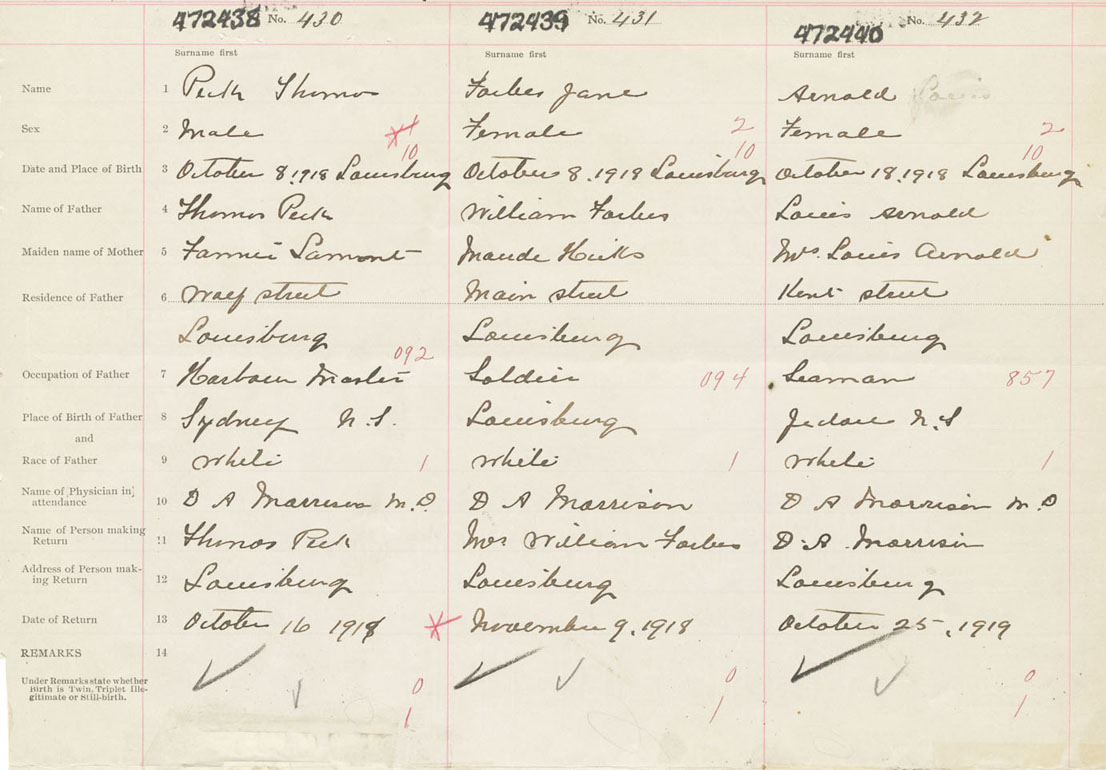 472438 No. 430 472439 No. 431 472440 No. 432
Surname first Surname first Surname first
Name 1 Peck Thomas Forbes Jane Arnold
Sex 2 Male 1 Female 2 Female 2
10 10 10
Date and Place of Birth 3 October 8, 1918 Louisburg October 8, 1918 Louisburg October 18, 1918 Louisburg
Name of Father 4 Thomas Peck William Forbes Louis Arnold
Maiden name of Mother 5 Fannie Lamont Maude Hicks Mrs. Louis Arnold
Residence of Father 6 street Main street Kent street
Louisburg Louisburg Louisburg
092
Occupation of Father 7 Harbour Master Soldier 094 Seaman 857
Place of Birth of Father 8 Sydney N.S. Louisburg N.S
and
Race of Father 9 White 1 White 1 White 1
Name of [Physician in]
attendance 10 D A Morrison M.D. D A Morrison D A Morrison M.D
Name of Person making
Return 11 Thomas Peck Mrs William Forbes D. A. Morrison
Address of Person mak-
ing Return 12 Louisburg Louisburg Louisburg
Date of Return 13 October 16 1918 November 9, 1918 October 25, 1919
REMARKS 14
Under Remarks state whether
Birth is Twin, Triplet Ille-
gitimate or Still-birth.
0 0 0
1 1 1